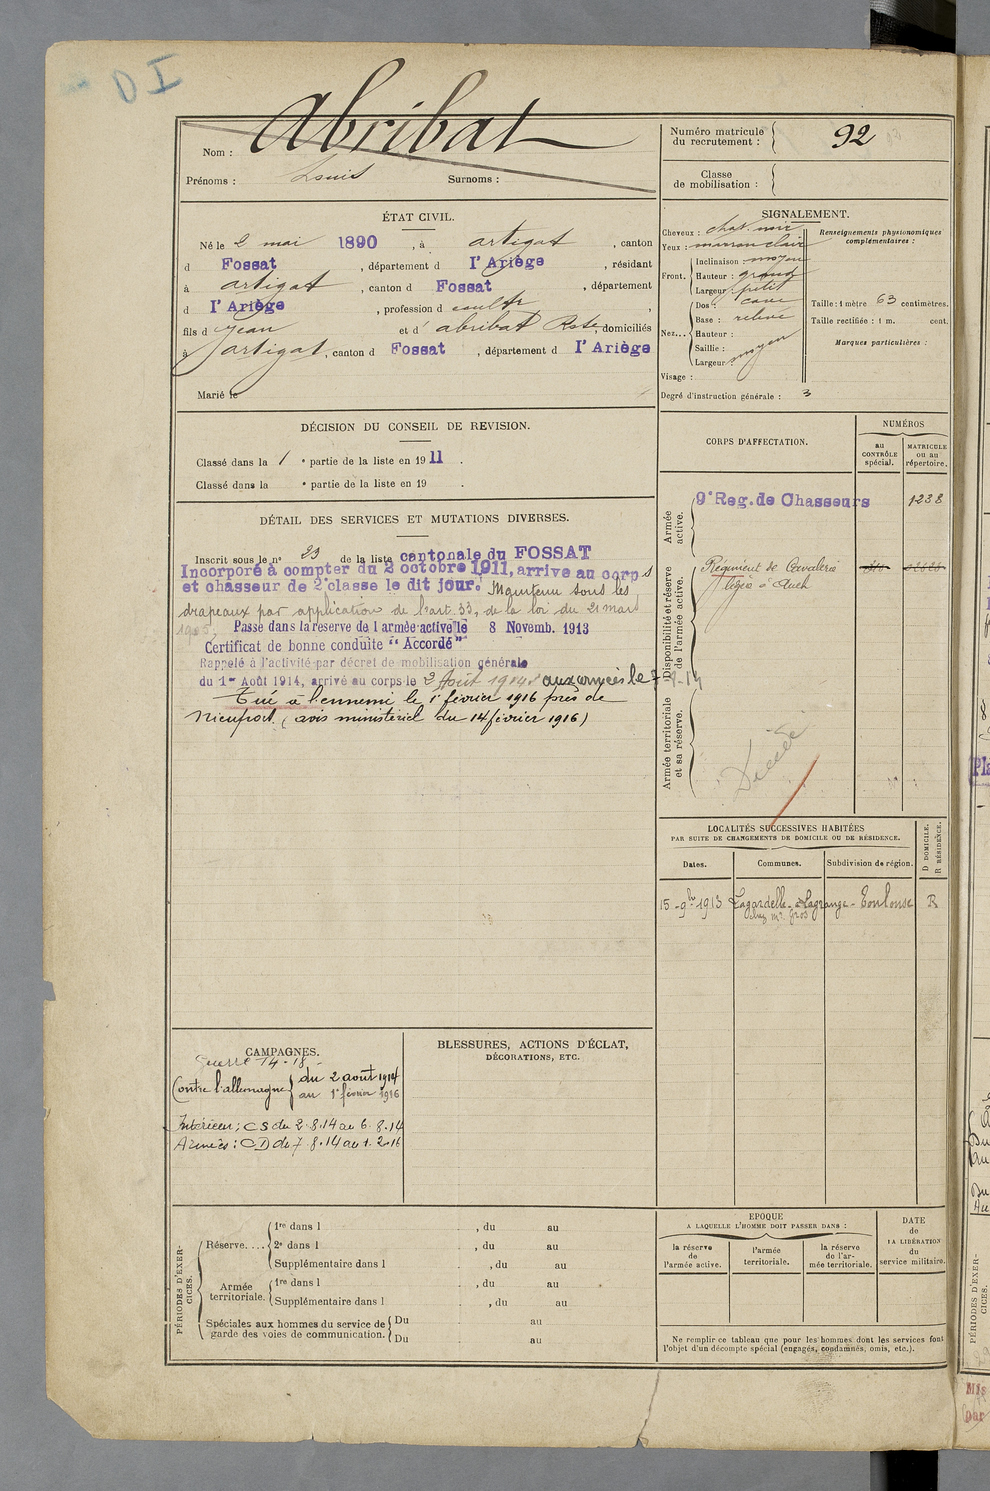 DI
Nom : Abribat
Prénoms : Louis Surnoms :
Numéro matricule du recrutement : 92
Classe de mobilisation :
ÉTAT CIVIL.
Né le 2 mai 1890, à artigat, canton
d Fossat, département d l'Ariège, résidant
à artigat, canton d Fossat, département
d l'Ariège, profession d cultr,
fils d Jean et d' abribat Rste, domiciliés
à artigat, canton d Fossat, département d l'Ariège
Marié le
SIGNALEMENT.
Cheveux : chat. noir
Yeux : marron clair
Front. Inclinaison : moyen
Hauteur : grand
Largeur : petit
Nez... Dos : cave
Base : relevé
Hauteur :
Saillie :
Largeur : moyen
Visage :
Degré d'instruction générale : 3
Renseignements physionomiques complémentaires :
Taille : 1 mètre 63 centimètres.
Taille rectifiée : 1 m. cent.
Marques particulières :
DÉCISION DU CONSEIL DE REVISION.
Classé dans la 1 e partie de la liste en 1911.
Classé dans la e partie de la liste en 19 .
DÉTAIL DES SERVICES ET MUTATIONS DIVERSES.
Inscrit sous le n° 23 de la liste cantonale du FOSSAT
Incorporé à compter du 2 octobre 1911, arrive au corps
et chasseur de 2e classe le dit jour. Maintenu sous les
drapeaux par application de l'art. 33, de la loi du 21 mars
1905. Passé dans la réserve de l'armée active le 8 Novemb. 1913
Certificat de bonne conduite "Accordé"
Rappelé à l'activité par décret de mobilisation générale
du 1er Août 1914, arrivé au corps le 2 Août 1914 aux armées le 7-8-14
Tué à l'ennemi le 1er février 1916 près de
Nieuport (avis ministériel du 14 février 1916)
CORPS D'AFFECTATION.
NUMÉROS
au CONTRÔLE spécial.
MATRICULE ou au répertoire.
Armée active.
9e Reg. de Chasseurs 1238
Disponibilité et réserve de l'armée active.
Régiment de Cavalerie
légère à Auch
Armée territoriale et sa réserve.
Décédé
LOCALITÉS SUCCESSIVES HABITÉES
PAR SUITE DE CHANGEMENTS DE DOMICILE OU DE RÉSIDENCE.
Dates. Communes. Subdivision de région. D DOMICILE. R RÉSIDENCE.
15-9bre 1913 Lagardelle-Lagrange - Toulouse R
chez Mr. Gros
CAMPAGNES.
Guerre 14-18
Contre l'allemagne du 2 août 1914
au 1er février 1916
Intérieur : CS du 2.8.14 au 6.8.14
Armées : CD du 7.8.14 au 1.2.16
BLESSURES, ACTIONS D'ÉCLAT,
DÉCORATIONS, ETC.
PÉRIODES D'EXERCICES.
Réserve.... 1re dans l , du au
2e dans l , du au
Supplémentaire dans l , du au
Armée territoriale. 1re dans l , du au
Supplémentaire dans l , du au
Spéciales aux hommes du service de garde des voies de communication. Du au
Du au
EPOQUE
A LAQUELLE L'HOMME DOIT PASSER DANS :
la réserve de l'armée active.
l'armée territoriale.
la réserve de l'armée territoriale.
DATE de LA LIBÉRATION du service militaire.
Ne remplir ce tableau que pour les hommes dont les services font
l'objet d'un décompte spécial (engagés, condamnés, omis, etc.).